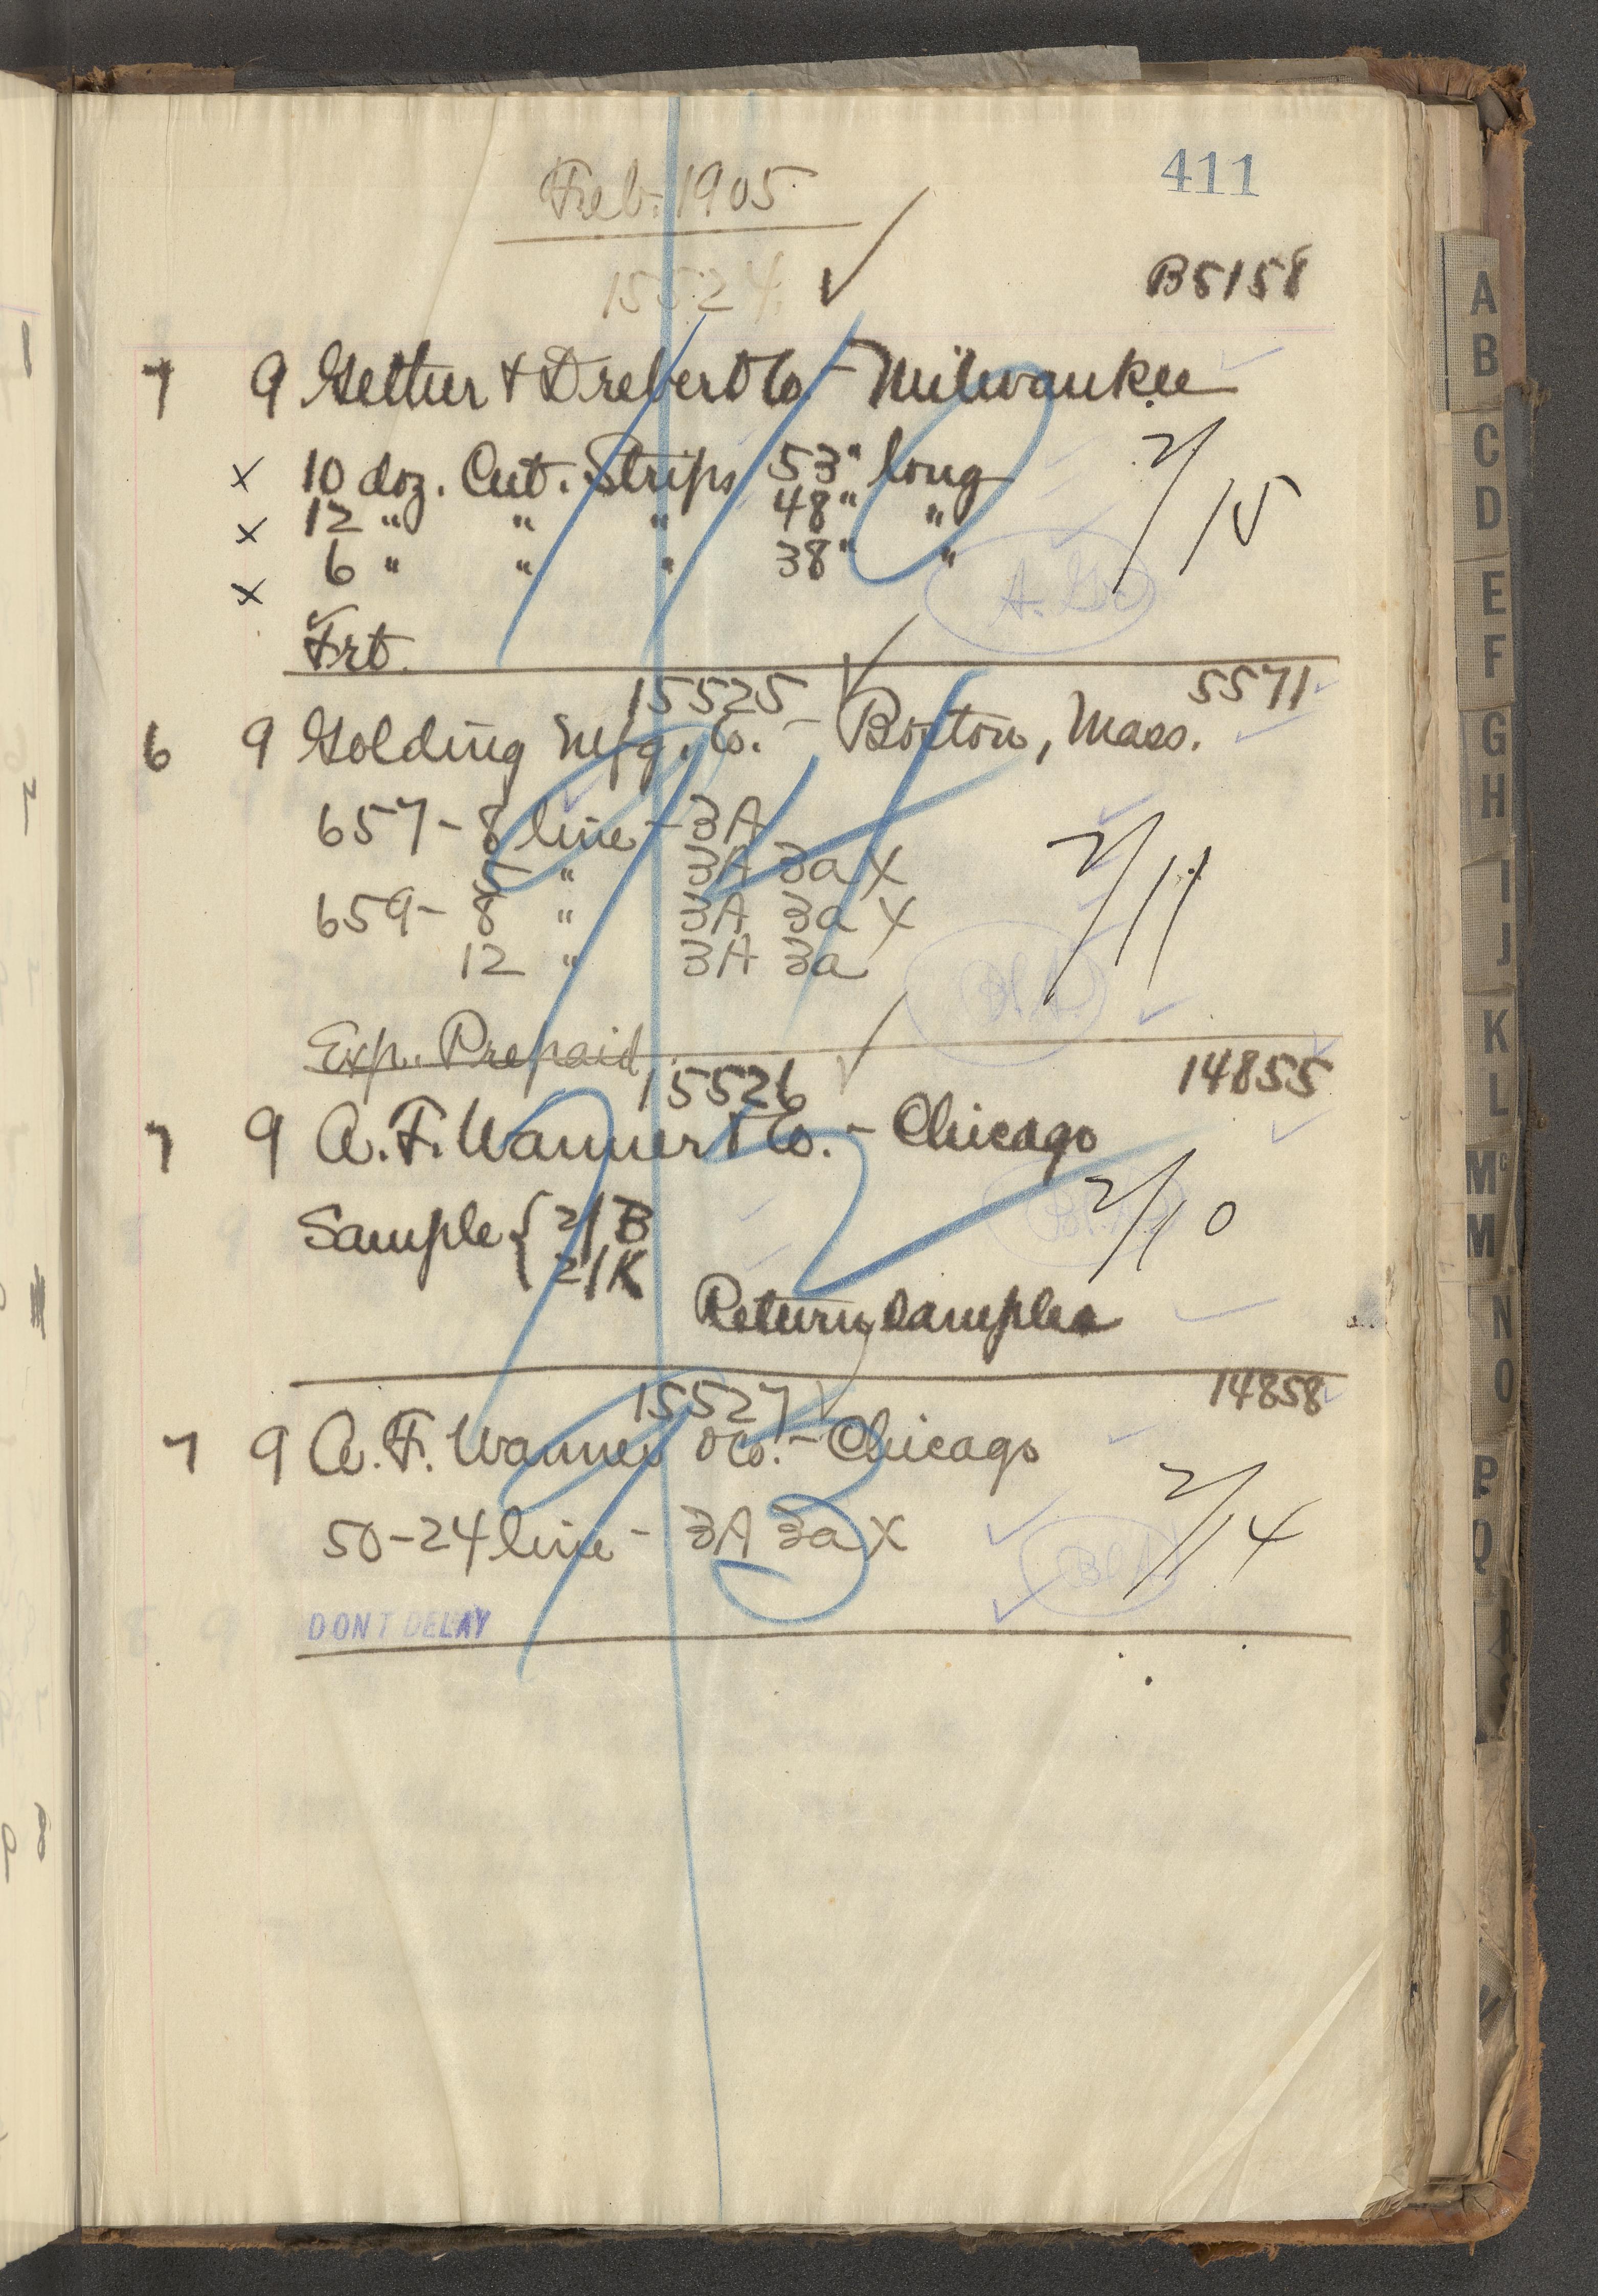 411
Feb. 1905
15524
B5158
7 9 Gether & Drebert Co. - Milwaukee
x 10 doz. Cut. Strips 53" long
x 12 " " " 48" "
x 6 " " " 38" "
2/15
Frt.
15525
5571
6 9 Golding Mfg. Co. - Boston, Mass.
657 - 8 line - 3A
5 " 3A 3a X
659 - 8 " 3A 3a X
12 " 3A 3a
2/11
Exp. Prepaid
15526
14855
7 9 A. F. Wanner & Co. - Chicago
Sample { 2/B
2/K
2/10
Return samples
15527
14858
7 9 A. F. Wanner & Co. - Chicago
50 - 24 line - 3A 3a X
2/14
DONT DELAY
A
B
C
D
E
F
G
H
I
J
K
L
Mc
M
N
O
P
Q